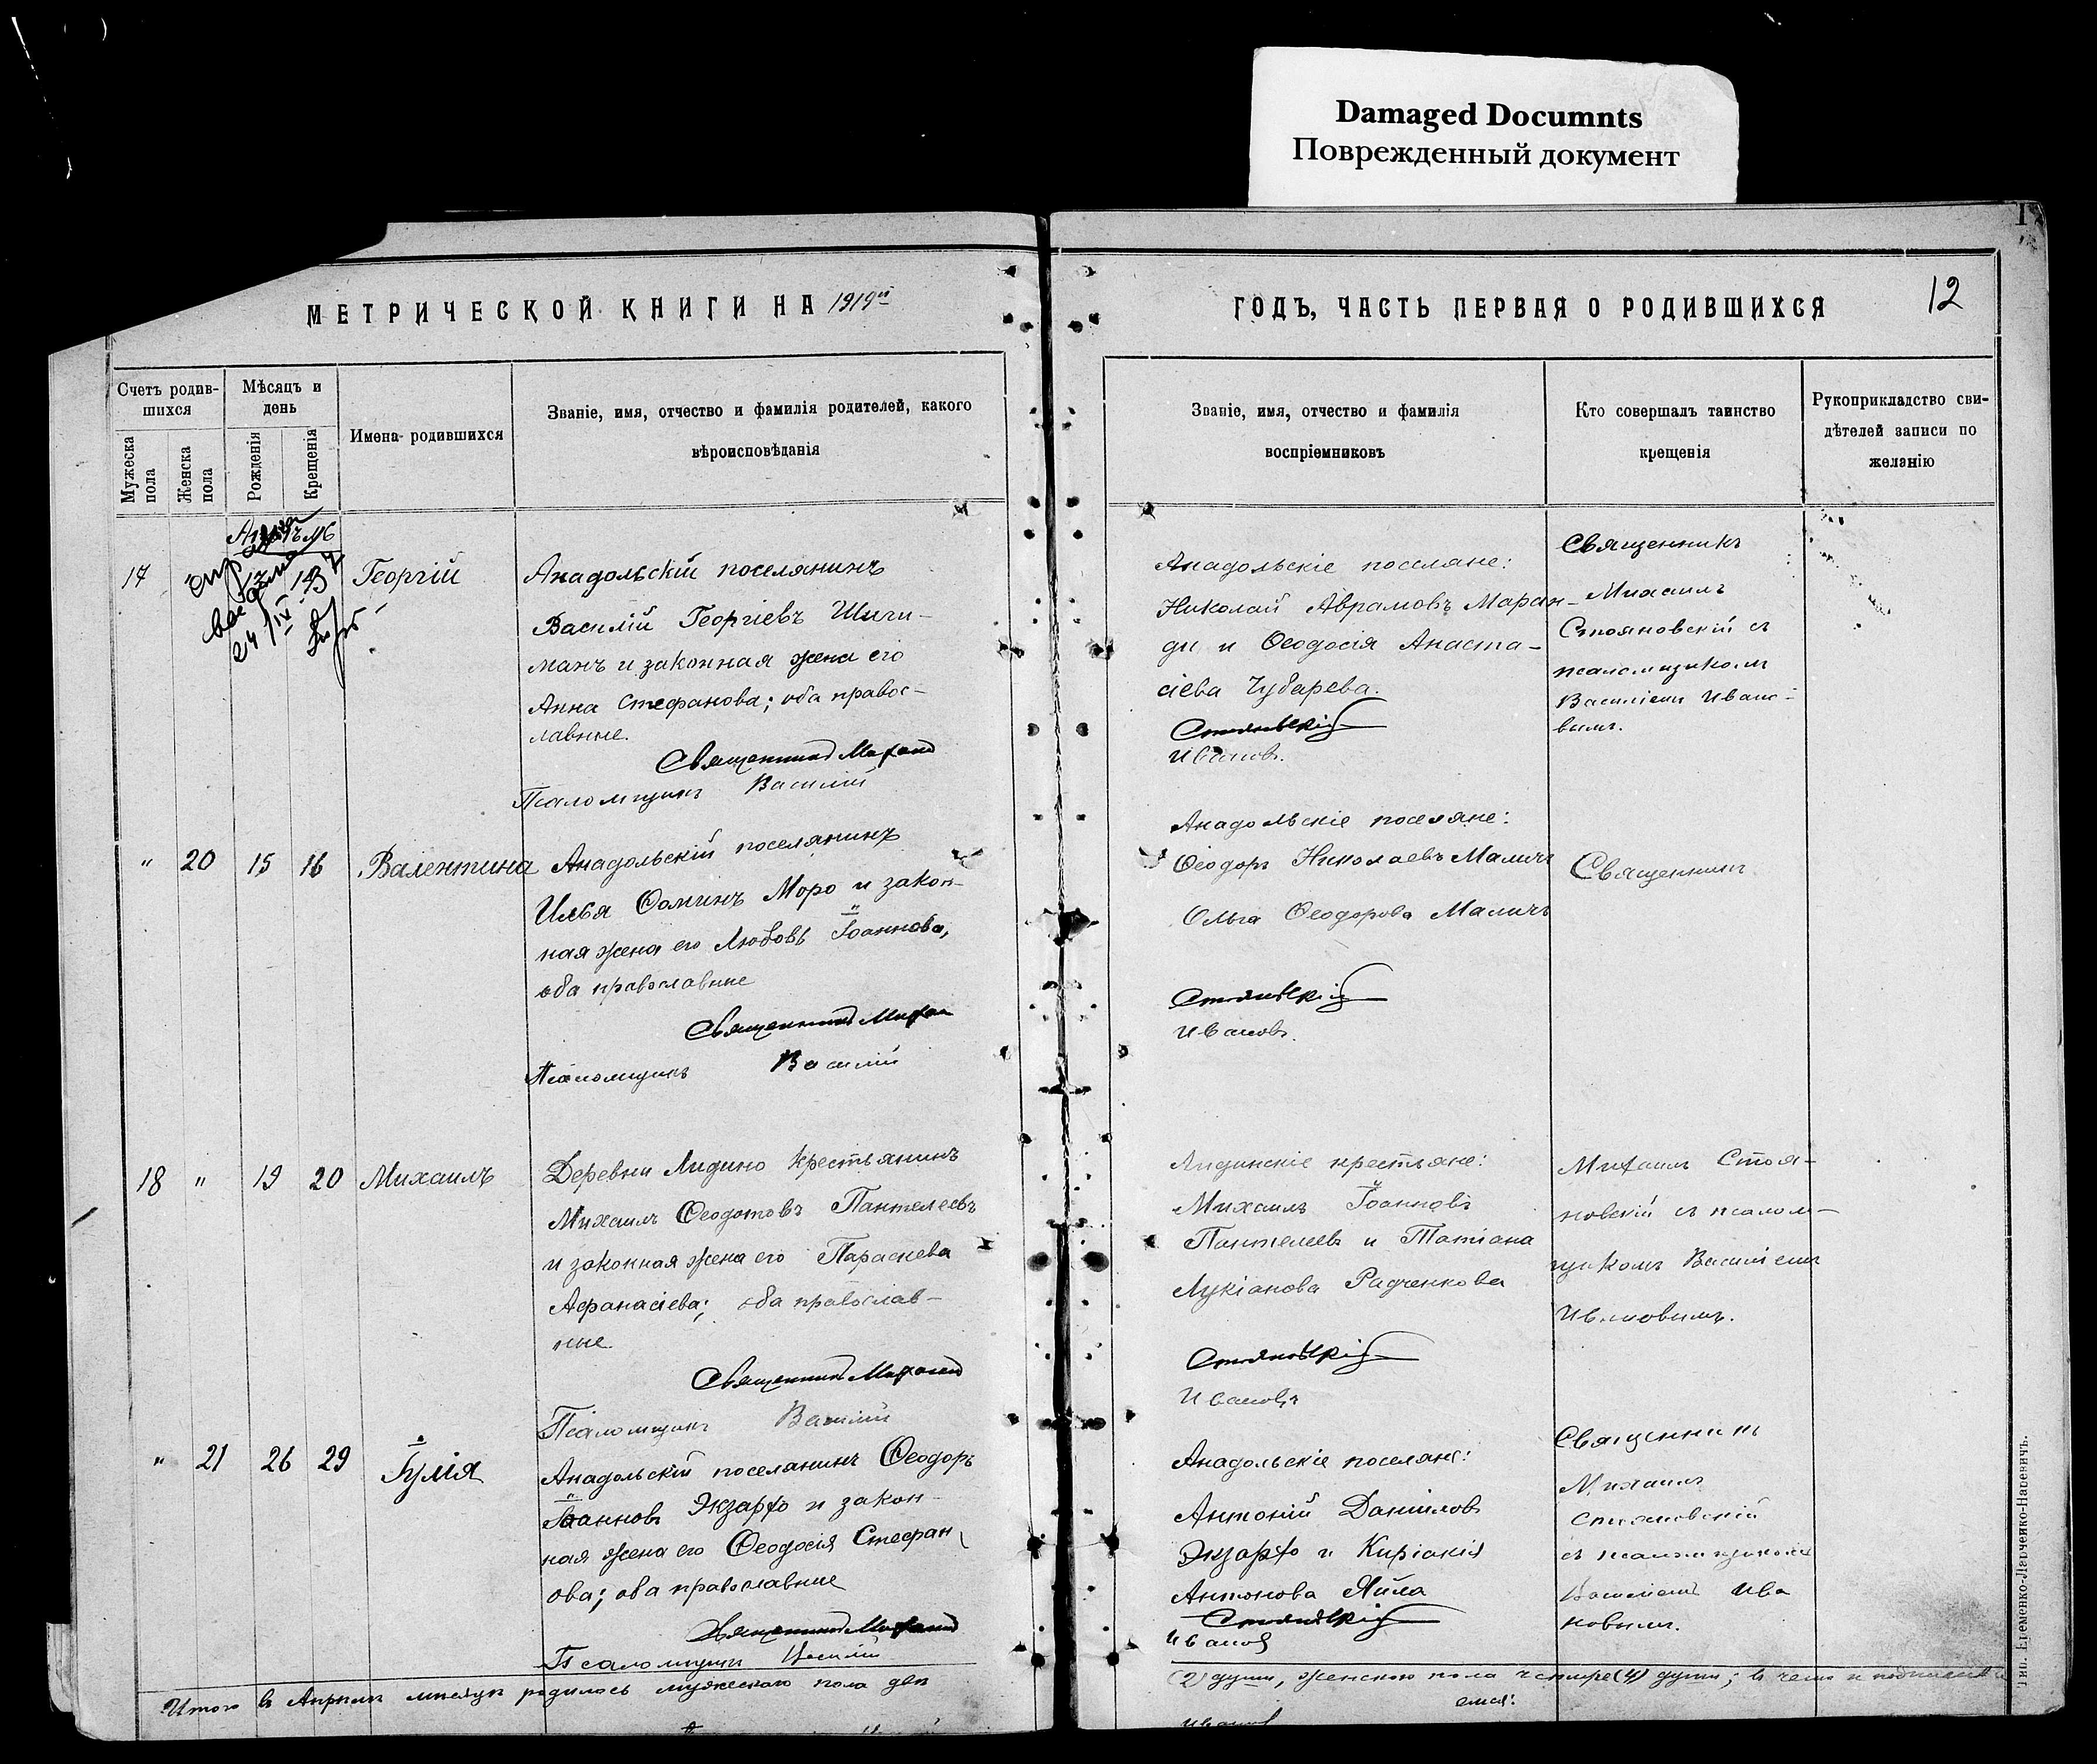 Damaged Documnts
Поврежденный документ
МЕТРИЧЕСКОЙ КНИГИ НА 1919й
ГОДЪ, ЧАСТЬ ПЕРВАЯ О РОДИВШИХСЯ
12
Счетъ родив-
шихся
Мужеска пола
Женска пола
Мѣсяцъ и
день
Рожденія
Крещенія
Имена родившихся
Званіе, имя, отчество и фамилія родителей, какого
вѣроисповѣданія
Званіе, имя, отчество и фамилія
воспріемниковъ
Кто совершалъ таинство
крещенія
Рукоприкладство сви-
дѣтелей записи по
желанію
17
24/IV
Георгій
Анадольскій поселянинъ
Василій Георгіевъ Шиги-
манъ и законная жена его
Анна Стефанова; оба правос-
лавные.
Священникъ Михаилъ
Псаломщикъ Василій
Анадольскіе поселяне:
Николай Аврамовъ Маран-
ди и Ѳеодосія Анаста-
сіева Чубарева.
Стояновскій
Ивановъ.
Священникъ
Михаилъ
Стояновскій съ
псаломщикомъ
Василіемъ Ивано-
вымъ.
" 20 15 16 Валентина
Анадольскій поселянинъ
Илья Ѳоминъ Моро и закон-
ная жена его Любовь Іоаннова,
оба православные
Священникъ Михаилъ
Псаломщикъ Василій
Анадольскіе поселяне:
Ѳеодоръ Николаевъ Маличъ
Ольга Ѳеодорова Маличъ
Стояновскій
Ивановъ.
Священникъ
18 " 19 20 Михаилъ
Деревни Лидино крестьянинъ
Михаилъ Ѳеодотовъ Пантелеевъ
и законная жена его Параскева
Афанасіева; оба православ-
ные.
Священникъ Михаилъ
Псаломщикъ Василій
Лидинскіе крестьяне:
Михаилъ Іоанновъ
Пантелеевъ и Татіана
Лукіанова Радченкова
Стояновскій
Ивановъ
Михаилъ Стоя-
новскій съ псалом-
щикомъ Василіемъ
Ивановымъ.
" 21 26 29 Іулія
Анадольскій поселянинъ Ѳеодоръ
Іоанновъ Экзархо и закон-
ная жена его Ѳеодосія Стефан
ова; оба православные
Священникъ Михаилъ
Псаломщикъ Василій
Анадольскіе поселяне:
Антоній Даніиловъ
Экзархо и Киріакія
Антонова Яйла
Стояновскій
Ивановъ
Священникъ
Михаилъ
Стояновскій
съ псаломщикомъ
Василіемъ Ива
новымъ.
Итого въ Апрѣлѣ мѣсяцѣ родилось мужескаго пола двѣ
(2) души, женскаго пола четыре (4) души; въ чемъ и подписыва
емся:
Ивановъ
Тип. Еременко-Ларченко-Насевичъ.